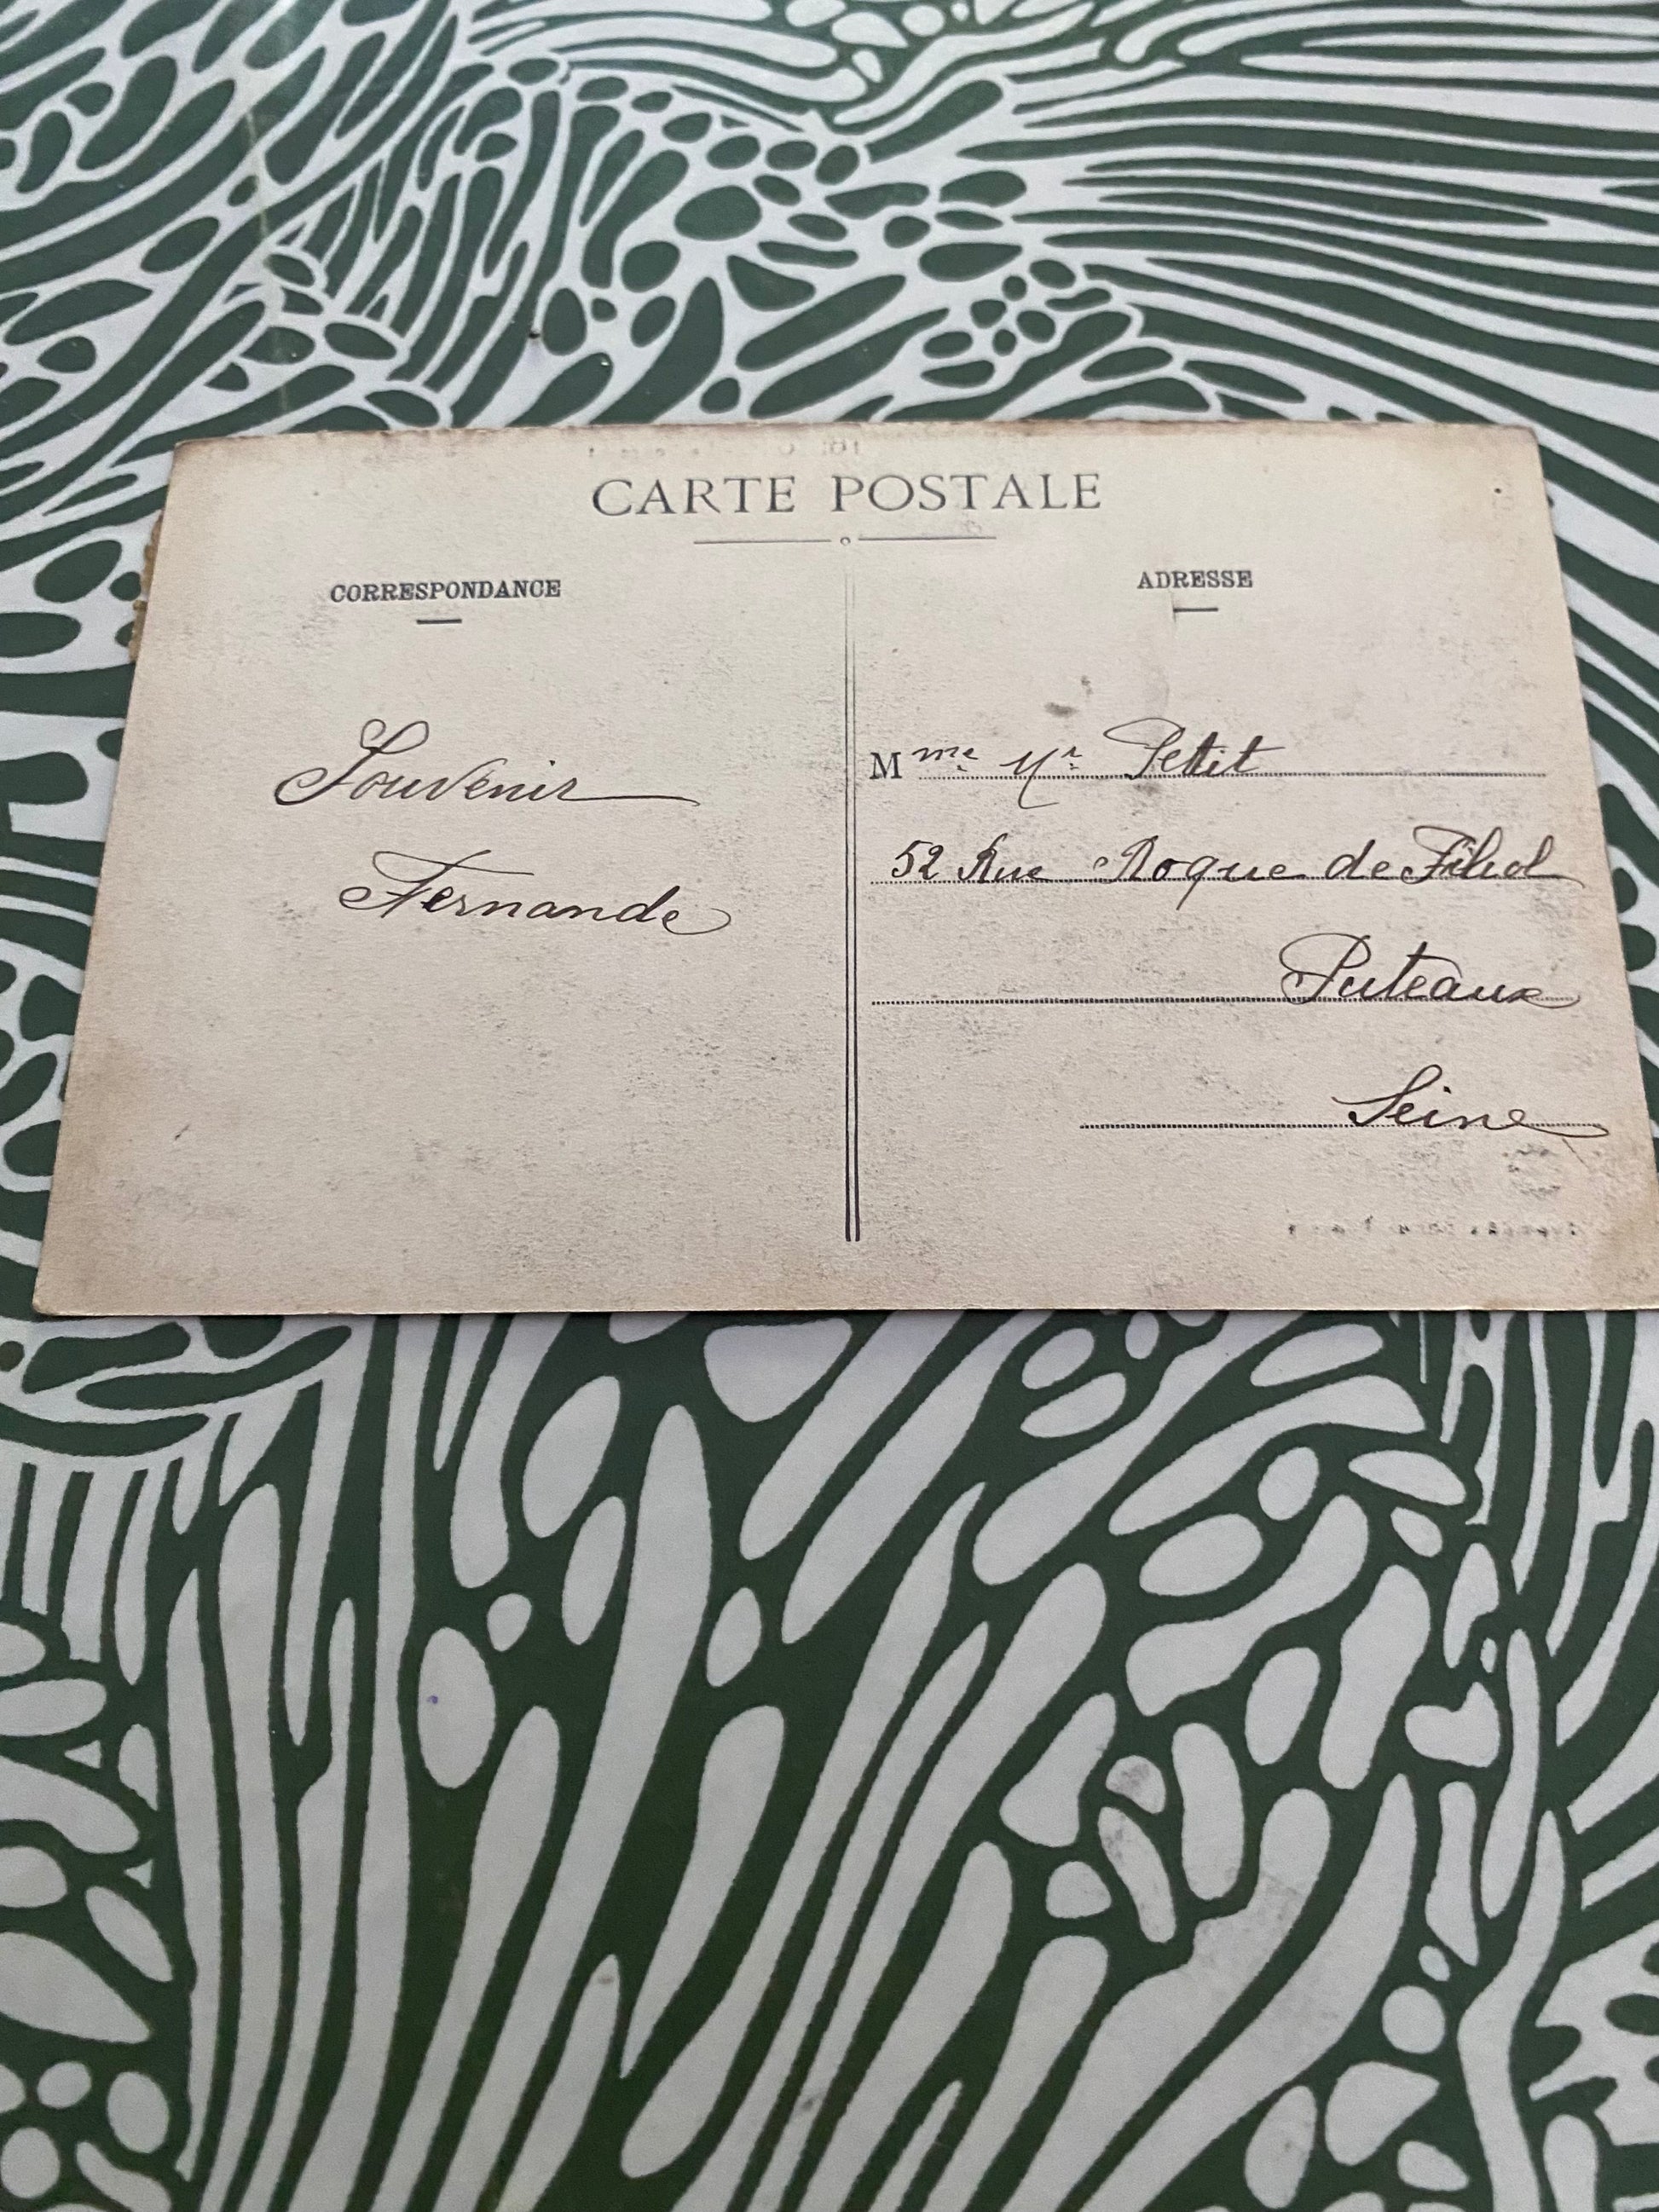 CARTE POSTALE
CORRESPONDANCE
ADRESSE
Souvenir
Fernande
Mme Petit
52 Rue Roque de Filhol
Puteaux
Seine